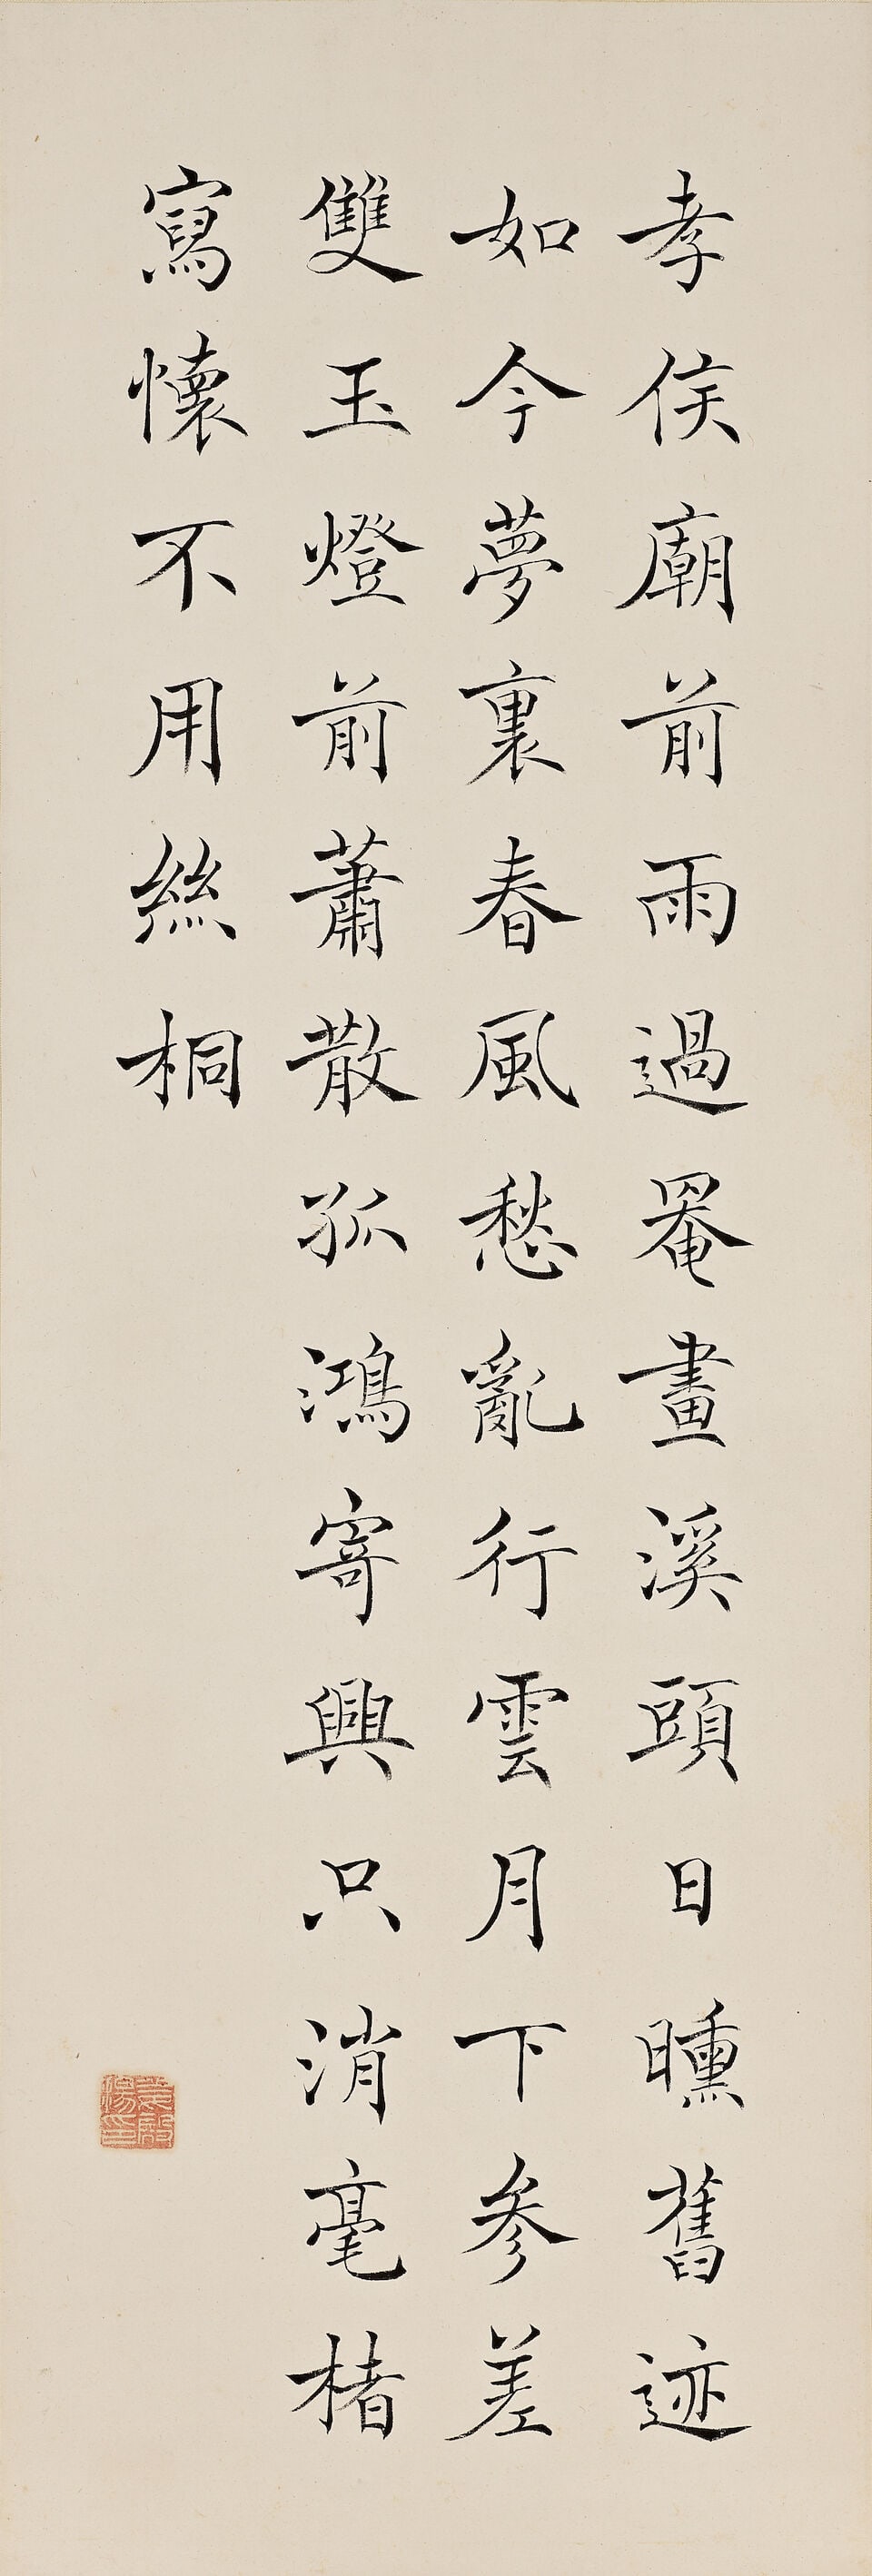 孝侯廟前雨過罨畫溪頭日曛舊迹
如今夢裏春風愁亂行雲月下參差
雙玉燈前蕭散孤鴻寄興只消毫楮
寫懷不用絲桐